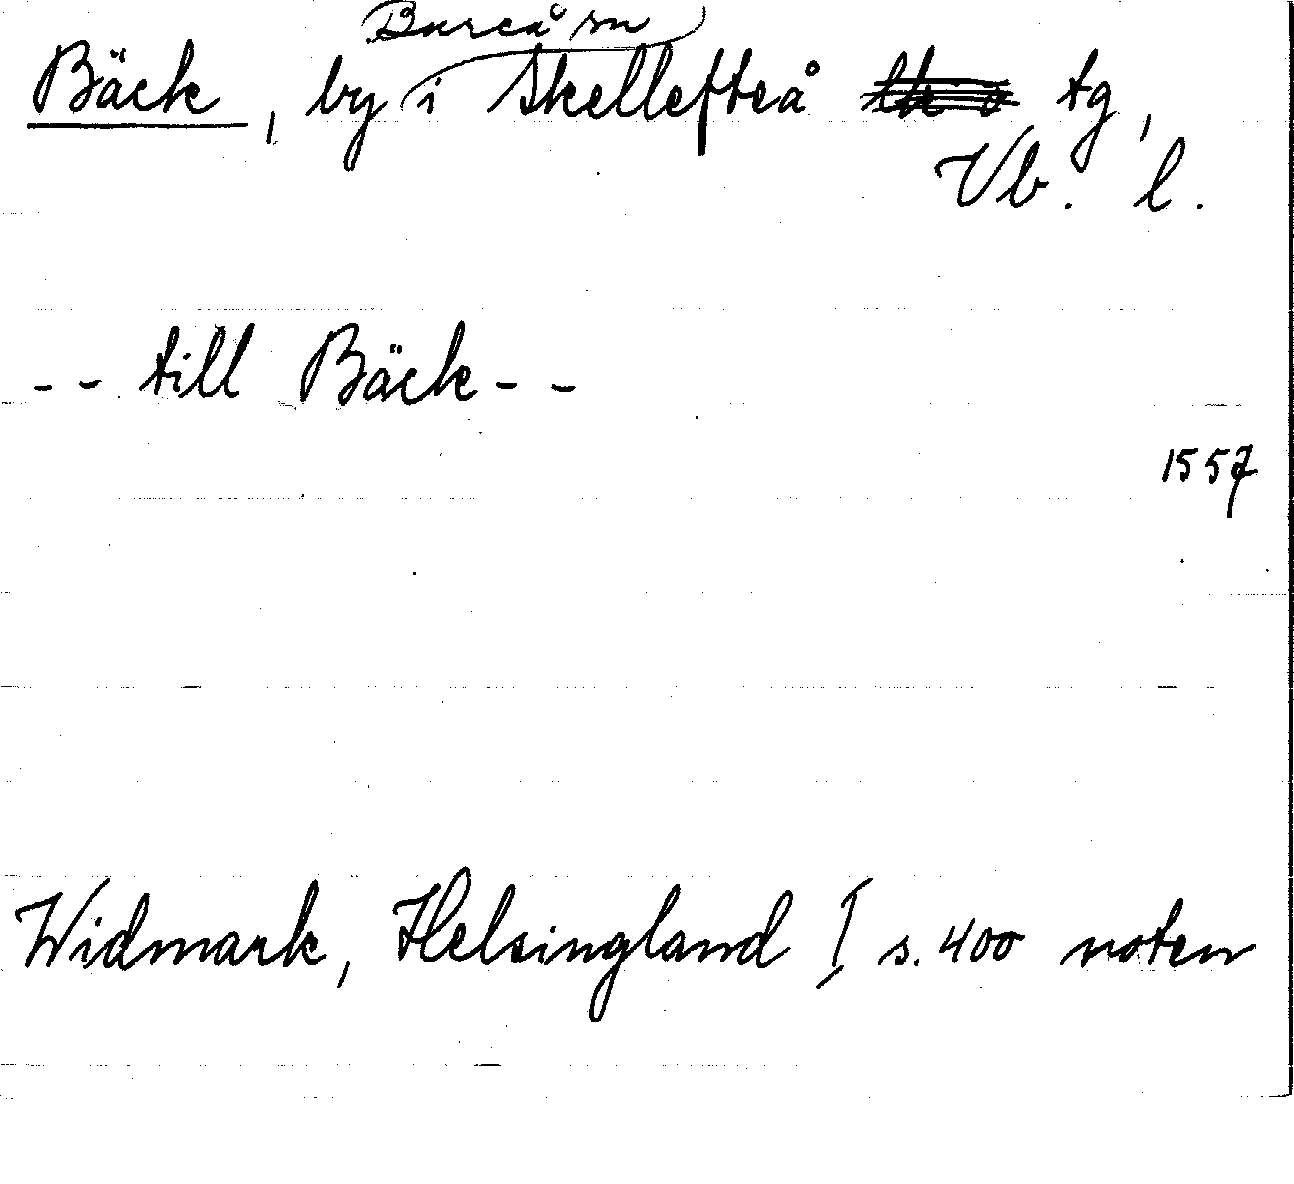 Bureå sn
Bäck, by i Skellefteå tg,
Vb. l.
-- till Bäck --
1557
Widmark, Helsingland I, s. 400 noten